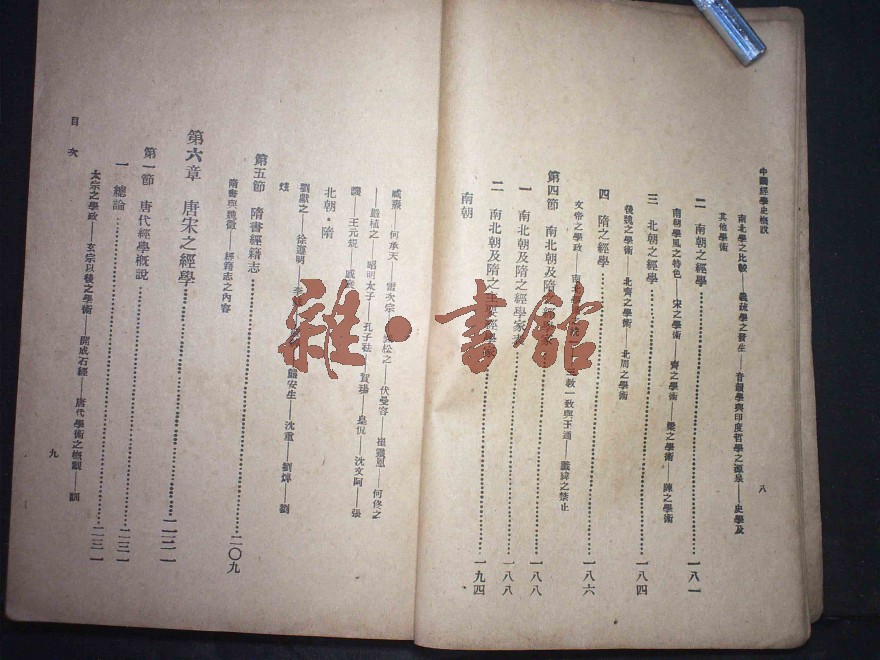 中國經學史概說
八
南北學之比較——義疏學之發生——音韻學與印度哲學之源泉——史學及
其他學術
二 南朝之經學 一八一
南朝學風之特色——宋之學術——齊之學術——梁之學術——陳之學術
三 北朝之經學 一八四
後魏之學術——北齊之學術——北周之學術
四 隋之經學 一八六
文帝之學政 致與王通——讖緯之禁止
第四節 南北朝及隋
一 南北朝及隋之經學家 一八八
二 南北朝及隋之主要經學家 一八八
南朝 一九四
臧燾——何承天——雷次宗 松之——伏曼容——崔靈恩——何佟之
——嚴植之——昭明太子——孔子祛——賀瑒——皇侃——沈文阿——張
譏——王元規——戚袞
北朝・隋
劉獻之——徐遵明 熊安生——沈重——劉焯——劉
炫
第五節 隋書經籍志 二〇九
隋書與魏徵——經籍志之內容
第六章 唐宋之經學 二三一
第一節 唐代經學概說 二三一
一 總論 二三一
太宗之學政——玄宗以後之學術——開成石經——唐代學術之概觀——訓
目次
九
雜・書館